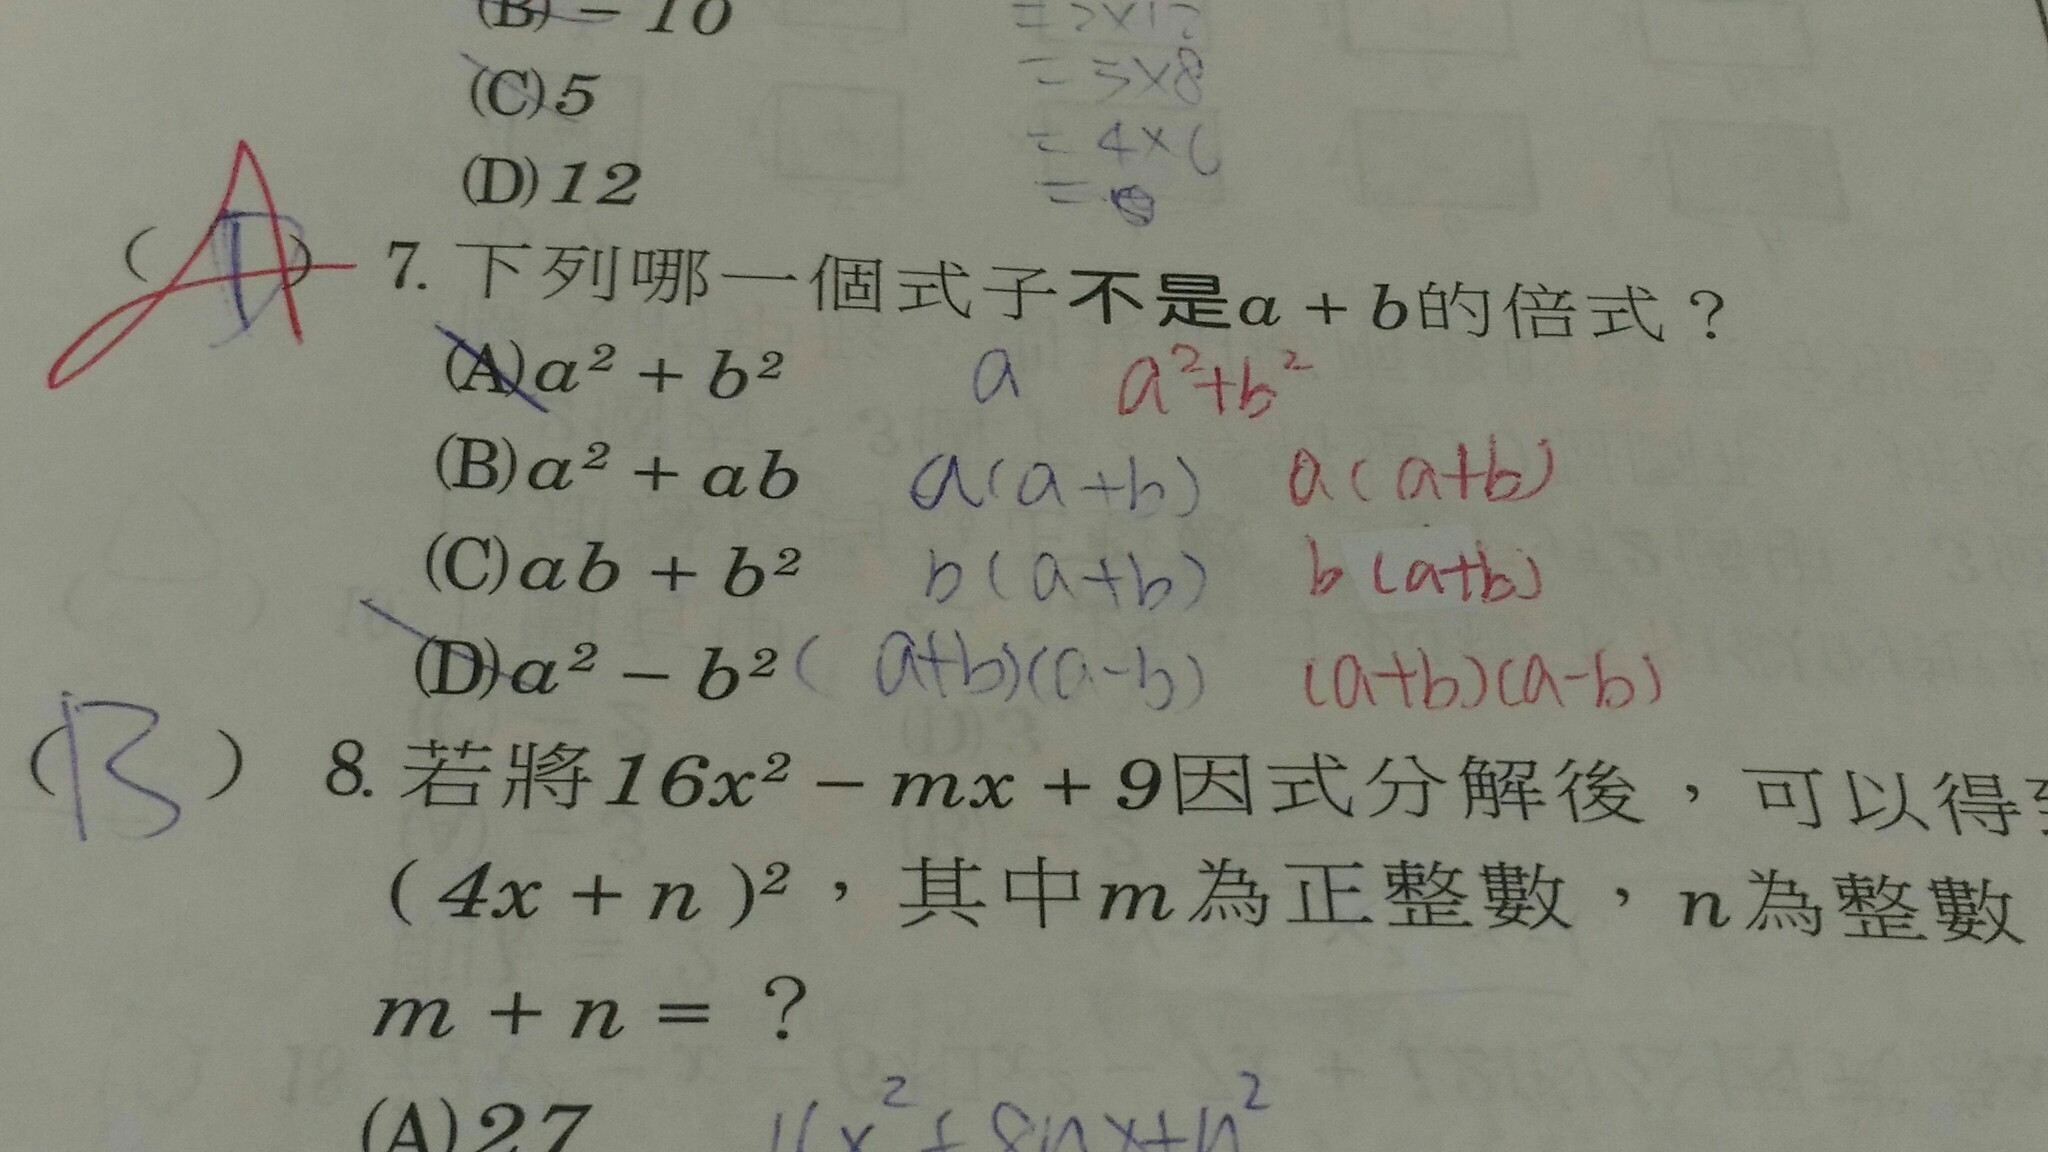 (B) - 10
= 3×8
(C) 5
= 4×6
(D) 12
=
(A) 7. 下列哪一個式子不是a + b的倍式？
(A) a² + b² a a²+b²
(B) a² + ab a(a+b) a(a+b)
(C) ab + b² b(a+b) b(a+b)
(D) a² - b² (a+b)(a-b) (a+b)(a-b)
(B) 8. 若將16x² - mx + 9因式分解後，可以得到
(4x + n)²，其中m為正整數，n為整數
m + n = ？
(A) 27 16x²+8nx+n²